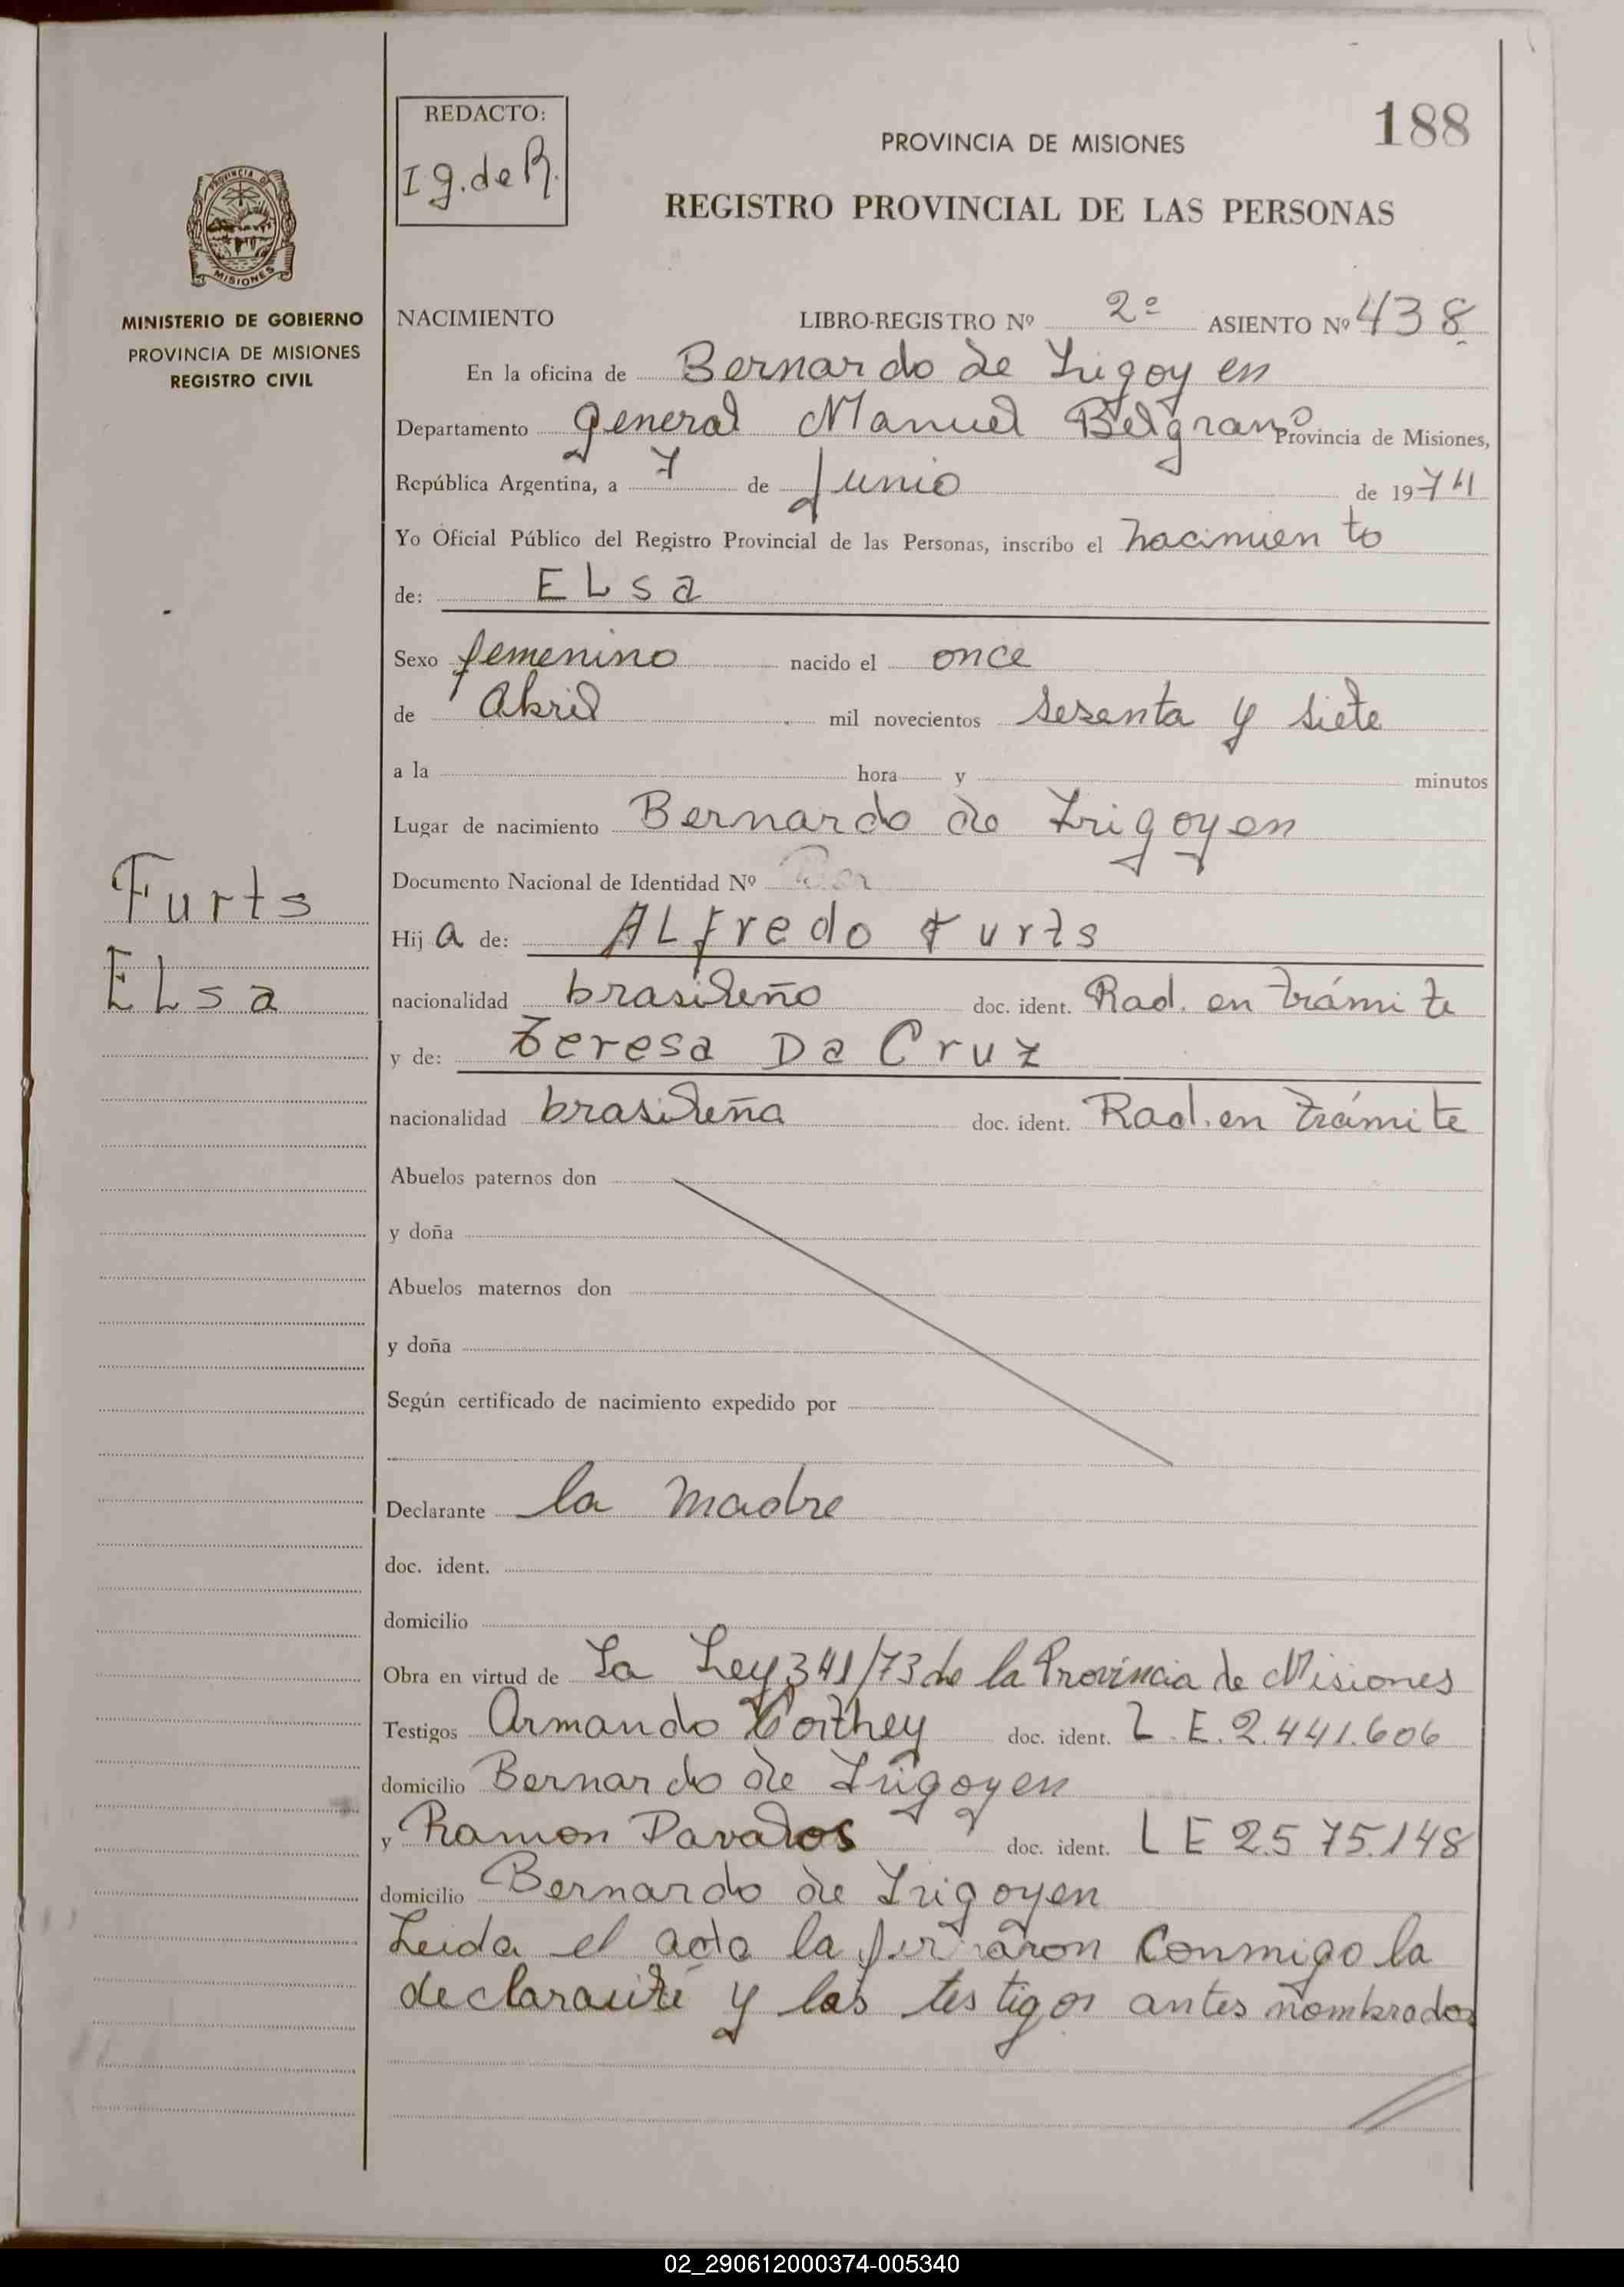 188
REDACTO:
Ig. de R.
PROVINCIA DE MISIONES
REGISTRO PROVINCIAL DE LAS PERSONAS
PROVINCIA DE
MISIONES
MINISTERIO DE GOBIERNO
PROVINCIA DE MISIONES
REGISTRO CIVIL
NACIMIENTO LIBRO-REGISTRO Nº 2º ASIENTO Nº 438
En la oficina de Bernardo de Irigoyen
Departamento General Manuel Belgrano Provincia de Misiones,
República Argentina, a 7 de Junio de 1974
Yo Oficial Público del Registro Provincial de las Personas, inscribo el nacimiento
de: ELsa
Sexo femenino nacido el once
de Abril mil novecientos sesenta y siete
a la hora y minutos
Lugar de nacimiento Bernardo de Irigoyen
Documento Nacional de Identidad Nº
Furts
Hija de: ALfredo Furts
ELsa
nacionalidad brasileño doc. ident. Rad. en trámite
y de: Teresa Da Cruz
nacionalidad brasileña doc. ident. Rad. en trámite
Abuelos paternos don
y doña
Abuelos maternos don
y doña
Según certificado de nacimiento expedido por
Declarante la madre
doc. ident.
domicilio
Obra en virtud de La Ley 341/73 de la Provincia de Misiones
Testigos Armando doc. ident. L.E. 2.441.606
domicilio Bernardo de Irigoyen
y Ramon Davalos doc. ident. L E 2.575.148
domicilio Bernardo de Irigoyen
Leida el acta la firmaron conmigo la
declarante y los testigos antes nombrados
02_290612000374-005340